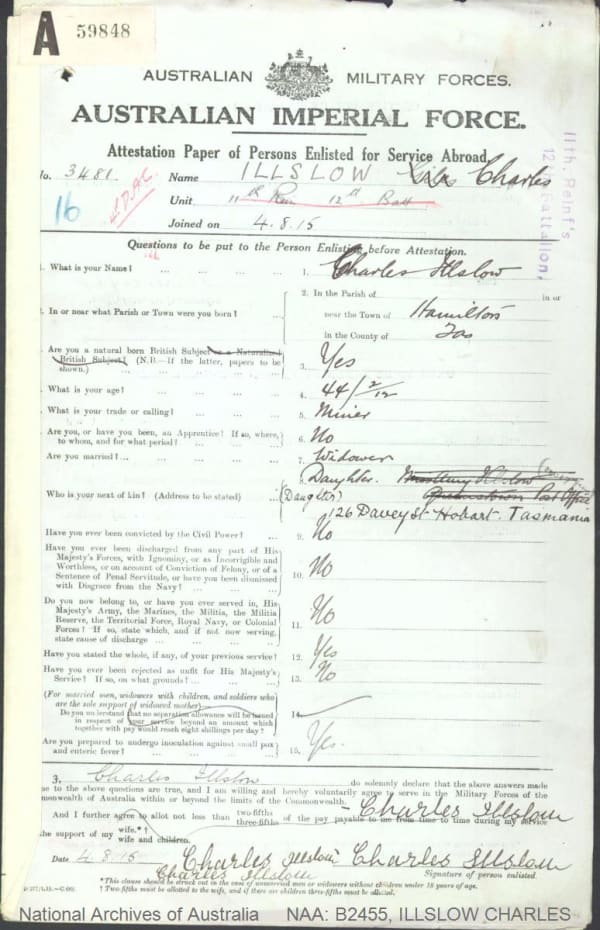 A 59848
AUSTRALIAN MILITARY FORCES.
AUSTRALIAN IMPERIAL FORCE.
Attestation Paper of Persons Enlisted for Service Abroad.
No. 3481 Name ILLSLOW Charles
16 Unit 11th Rein 12th Batt
Joined on 4.8.15
11th. Reinf's
12th Battalion,
Questions to be put to the Person Enlisting before Attestation.
1. What is your Name? ... ... ... ... 1. Charles Illslow
2. In or near what Parish or Town were you born? ... 2. In the Parish of in or
near the Town of Hamilton
in the County of Tas
3. Are you a natural born British Subject or a Naturalized
British Subject? (N.B.—If the latter, papers to be
shown.) ... ... ... 3. Yes
4. What is your age? ... ... ... ... 4. 44 2/12
5. What is your trade or calling? ... ... ... 5. Miner
Are you, or have you been, an Apprentice? If so, where,
to whom, and for what period? ... ... ... 6. No
Are you married? ... ... ... ... 7. Widower
Who is your next of kin? (Address to be stated) ... 8. Daughter.
(Daughter)
126 Davey St. Hobart. Tasmania
Have you ever been convicted by the Civil Power? ... 9. No
Have you ever been discharged from any part of His
Majesty's Forces, with Ignominy, or as Incorrigible and
Worthless, or on account of Conviction of Felony, or of a
Sentence of Penal Servitude, or have you been dismissed
with Disgrace from the Navy? ... ... ... 10. No
Do you now belong to, or have you ever served in, His
Majesty's Army, the Marines, the Militia, the Militia
Reserve, the Territorial Force, Royal Navy, or Colonial
Forces? If so, state which, and if not now serving,
state cause of discharge ... ... ... 11. No
Have you stated the whole, if any, of your previous service? 12. Yes
Have you ever been rejected as unfit for His Majesty's
Service? If so, on what grounds? ... ... ... 13. No
(For married men, widowers with children, and soldiers who
are the sole support of widowed mother)—
Do you understand that no separation allowance will be issued
in respect of your service beyond an amount which
together with pay would reach eight shillings per day? 14.
Are you prepared to undergo inoculation against small pox
and enteric fever? ... ... ... 15. Yes.
Charles Illslow do solemnly declare that the above answers made
me to the above questions are true, and I am willing and hereby voluntarily agree to serve in the Military Forces of the
monwealth of Australia within or beyond the limits of the Commonwealth.
And I further agree to allot not less than two-fifths
three-fifths of the pay payable to me from time to time during my service
the support of my wife.*†
wife and children.
Charles Illslow
Date 4.8.15 Charles Illslow Charles Illslow
Charles Illslow Signature of person enlisted.
*This clause should be struck out in the case of unmarried men or widowers without children under 18 years of age.
†Two-fifths must be allotted to the wife, and if there are children three-fifths must be allotted.
National Archives of Australia NAA: B2455, ILLSLOW CHARLES